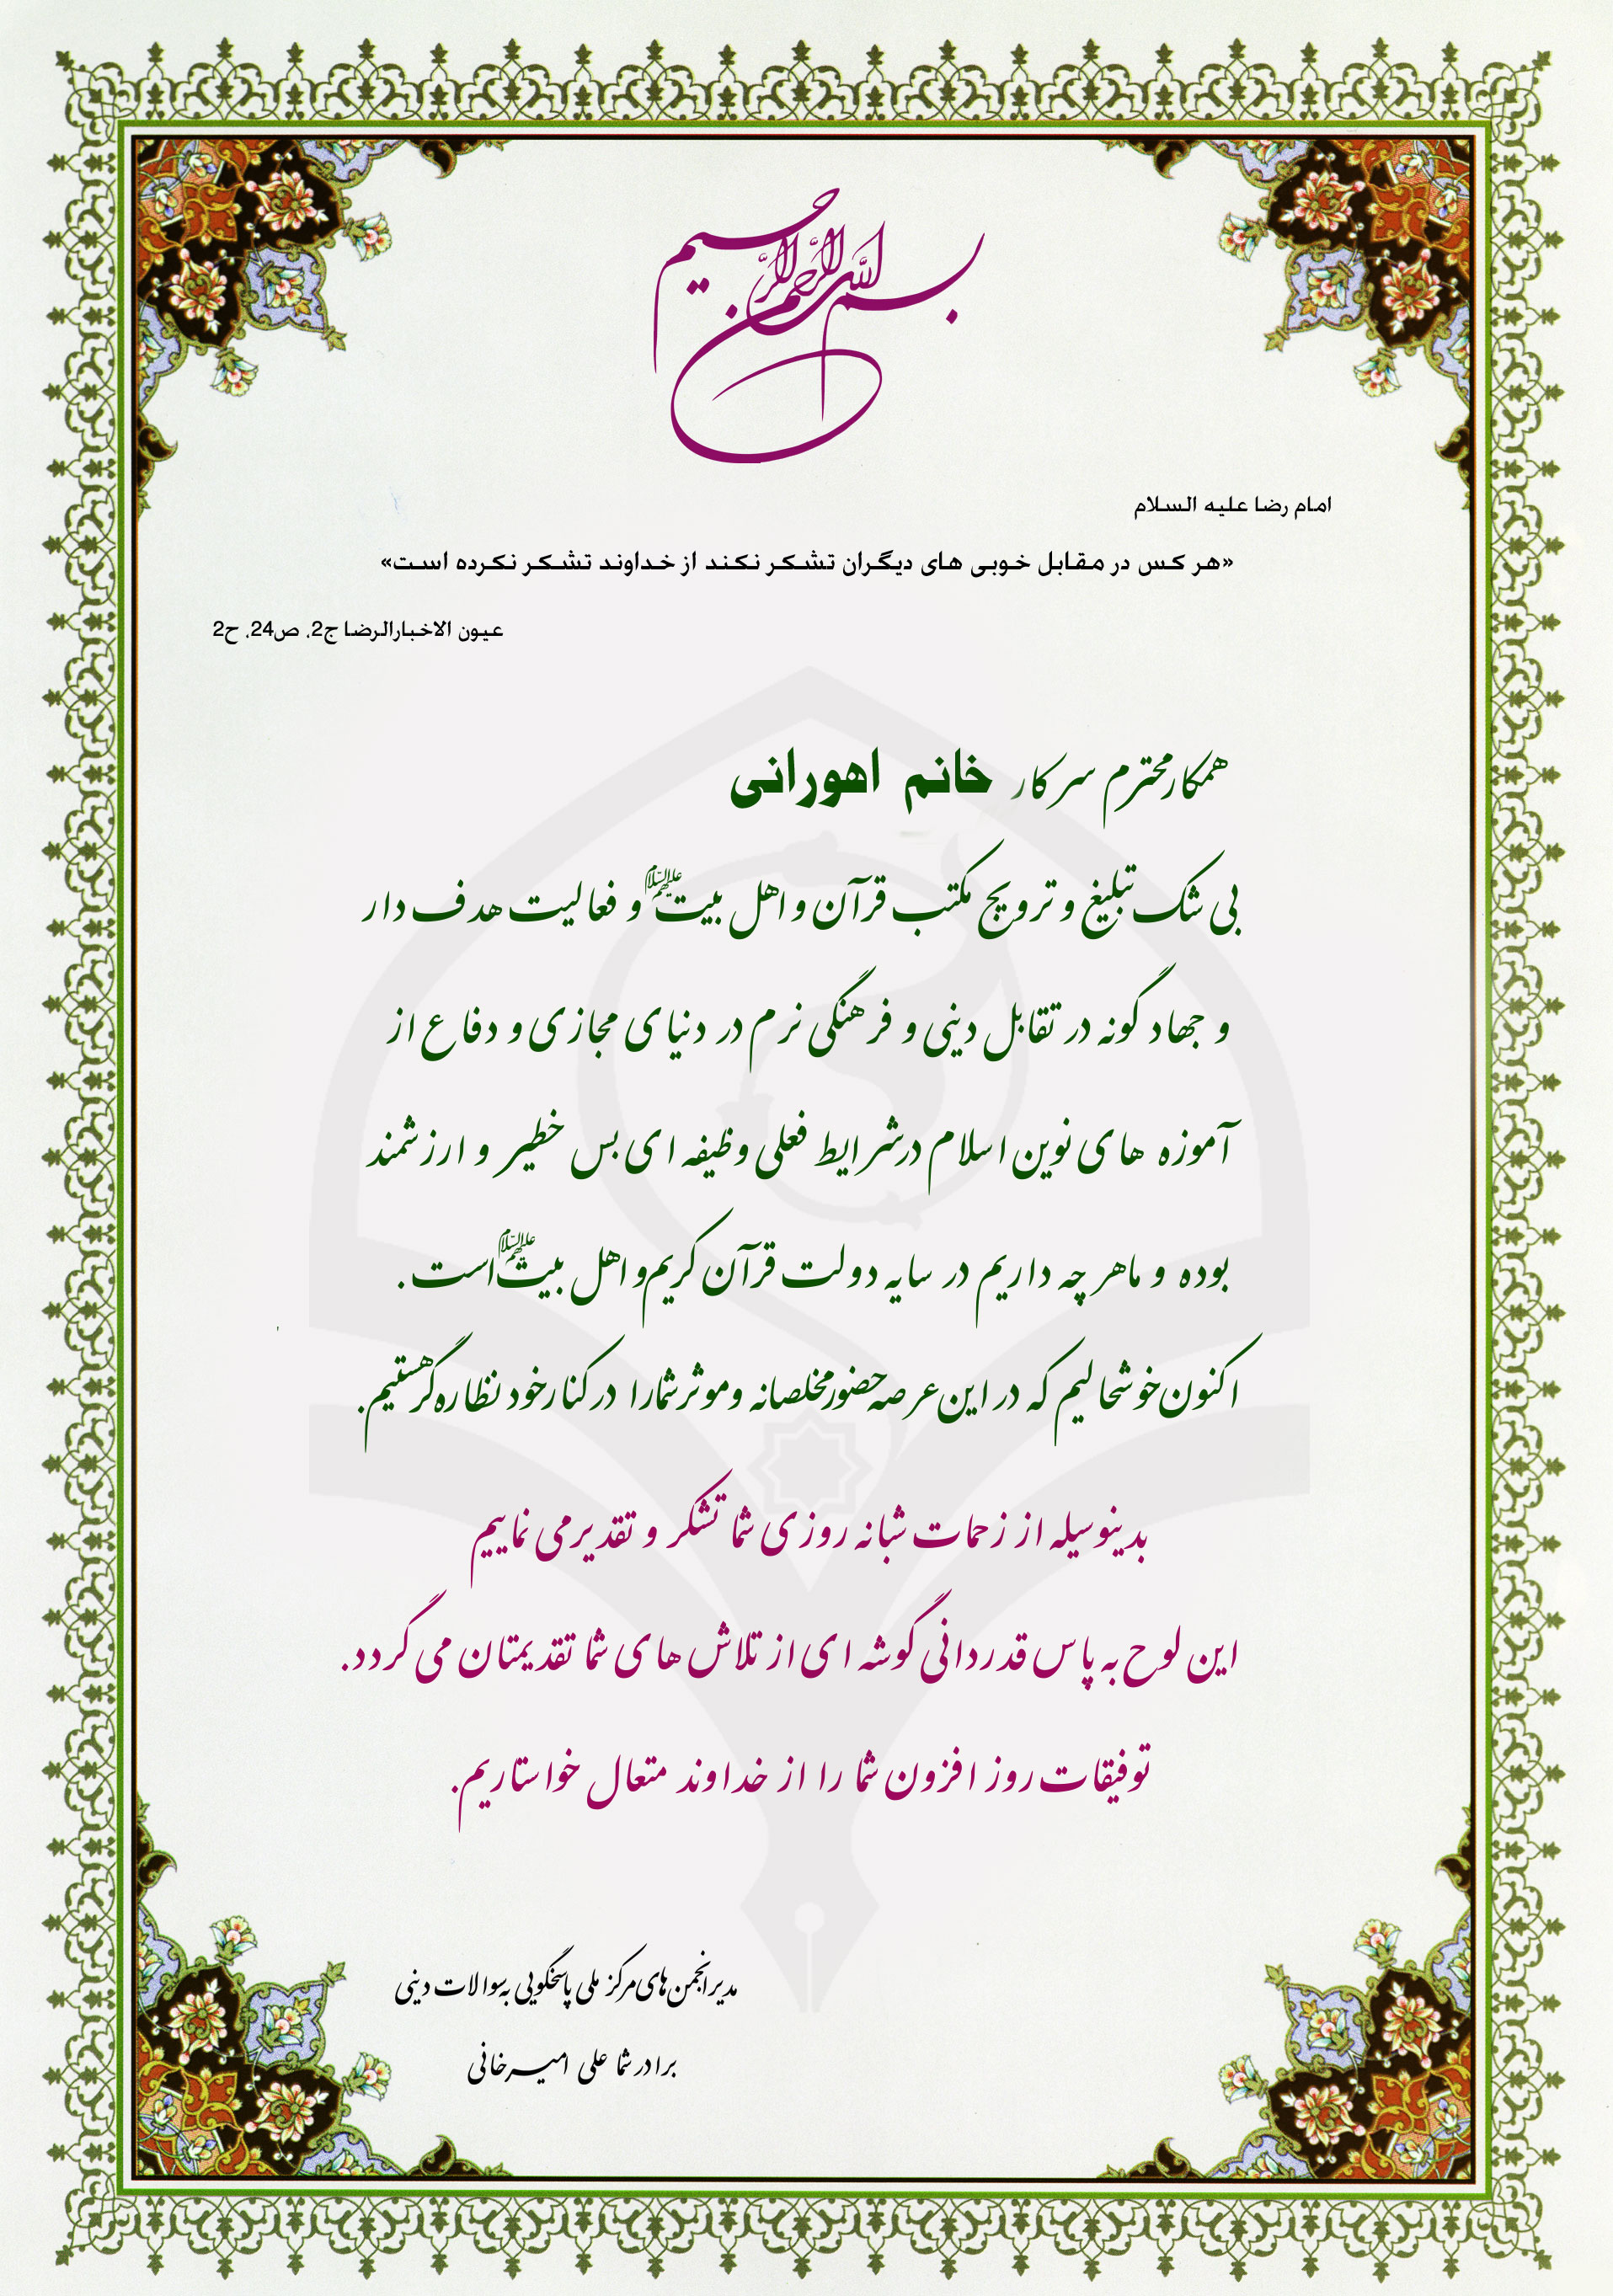 بسم الله الرحمن الرحیم
امام رضا علیه السلام
«هر کس در مقابل خوبی های دیگران تشکر نکند از خداوند تشکر نکرده است»
عیون الاخبارالرضا ج2، ص24، ح2
همکار محترم سرکار خانم اهورانی
بی شک تبلیغ و ترویج مکتب قرآن و اهل بیت علیهم السلام و فعالیت هدف دار
و جهاد گونه در تقابل دینی و فرهنگی نرم در دنیای مجازی و دفاع از
آموزه های نوین اسلام درشرایط فعلی وظیفه ای بس خطیر و ارزشمند
بوده و ماهر چه داریم در سایه دولت قرآن کریم و اهل بیت علیهم السلام است.
اکنون خوشحالیم که در این عرصه حضور مخلصانه وموثر شمارا در کنار خود نظاره گر هستیم.
بدینوسیله از زحمات شبانه روزی شما تشکر و تقدیر می نماییم
این لوح به پاس قدردانی گوشه ای از تلاش های شما تقدیمتان می گردد.
توفیقات روز افزون شما را از خداوند متعال خواستاریم.
مدیر انجمن های مرکز ملی پاسخگویی به سوالات دینی
برادر شما علی امیرخانی